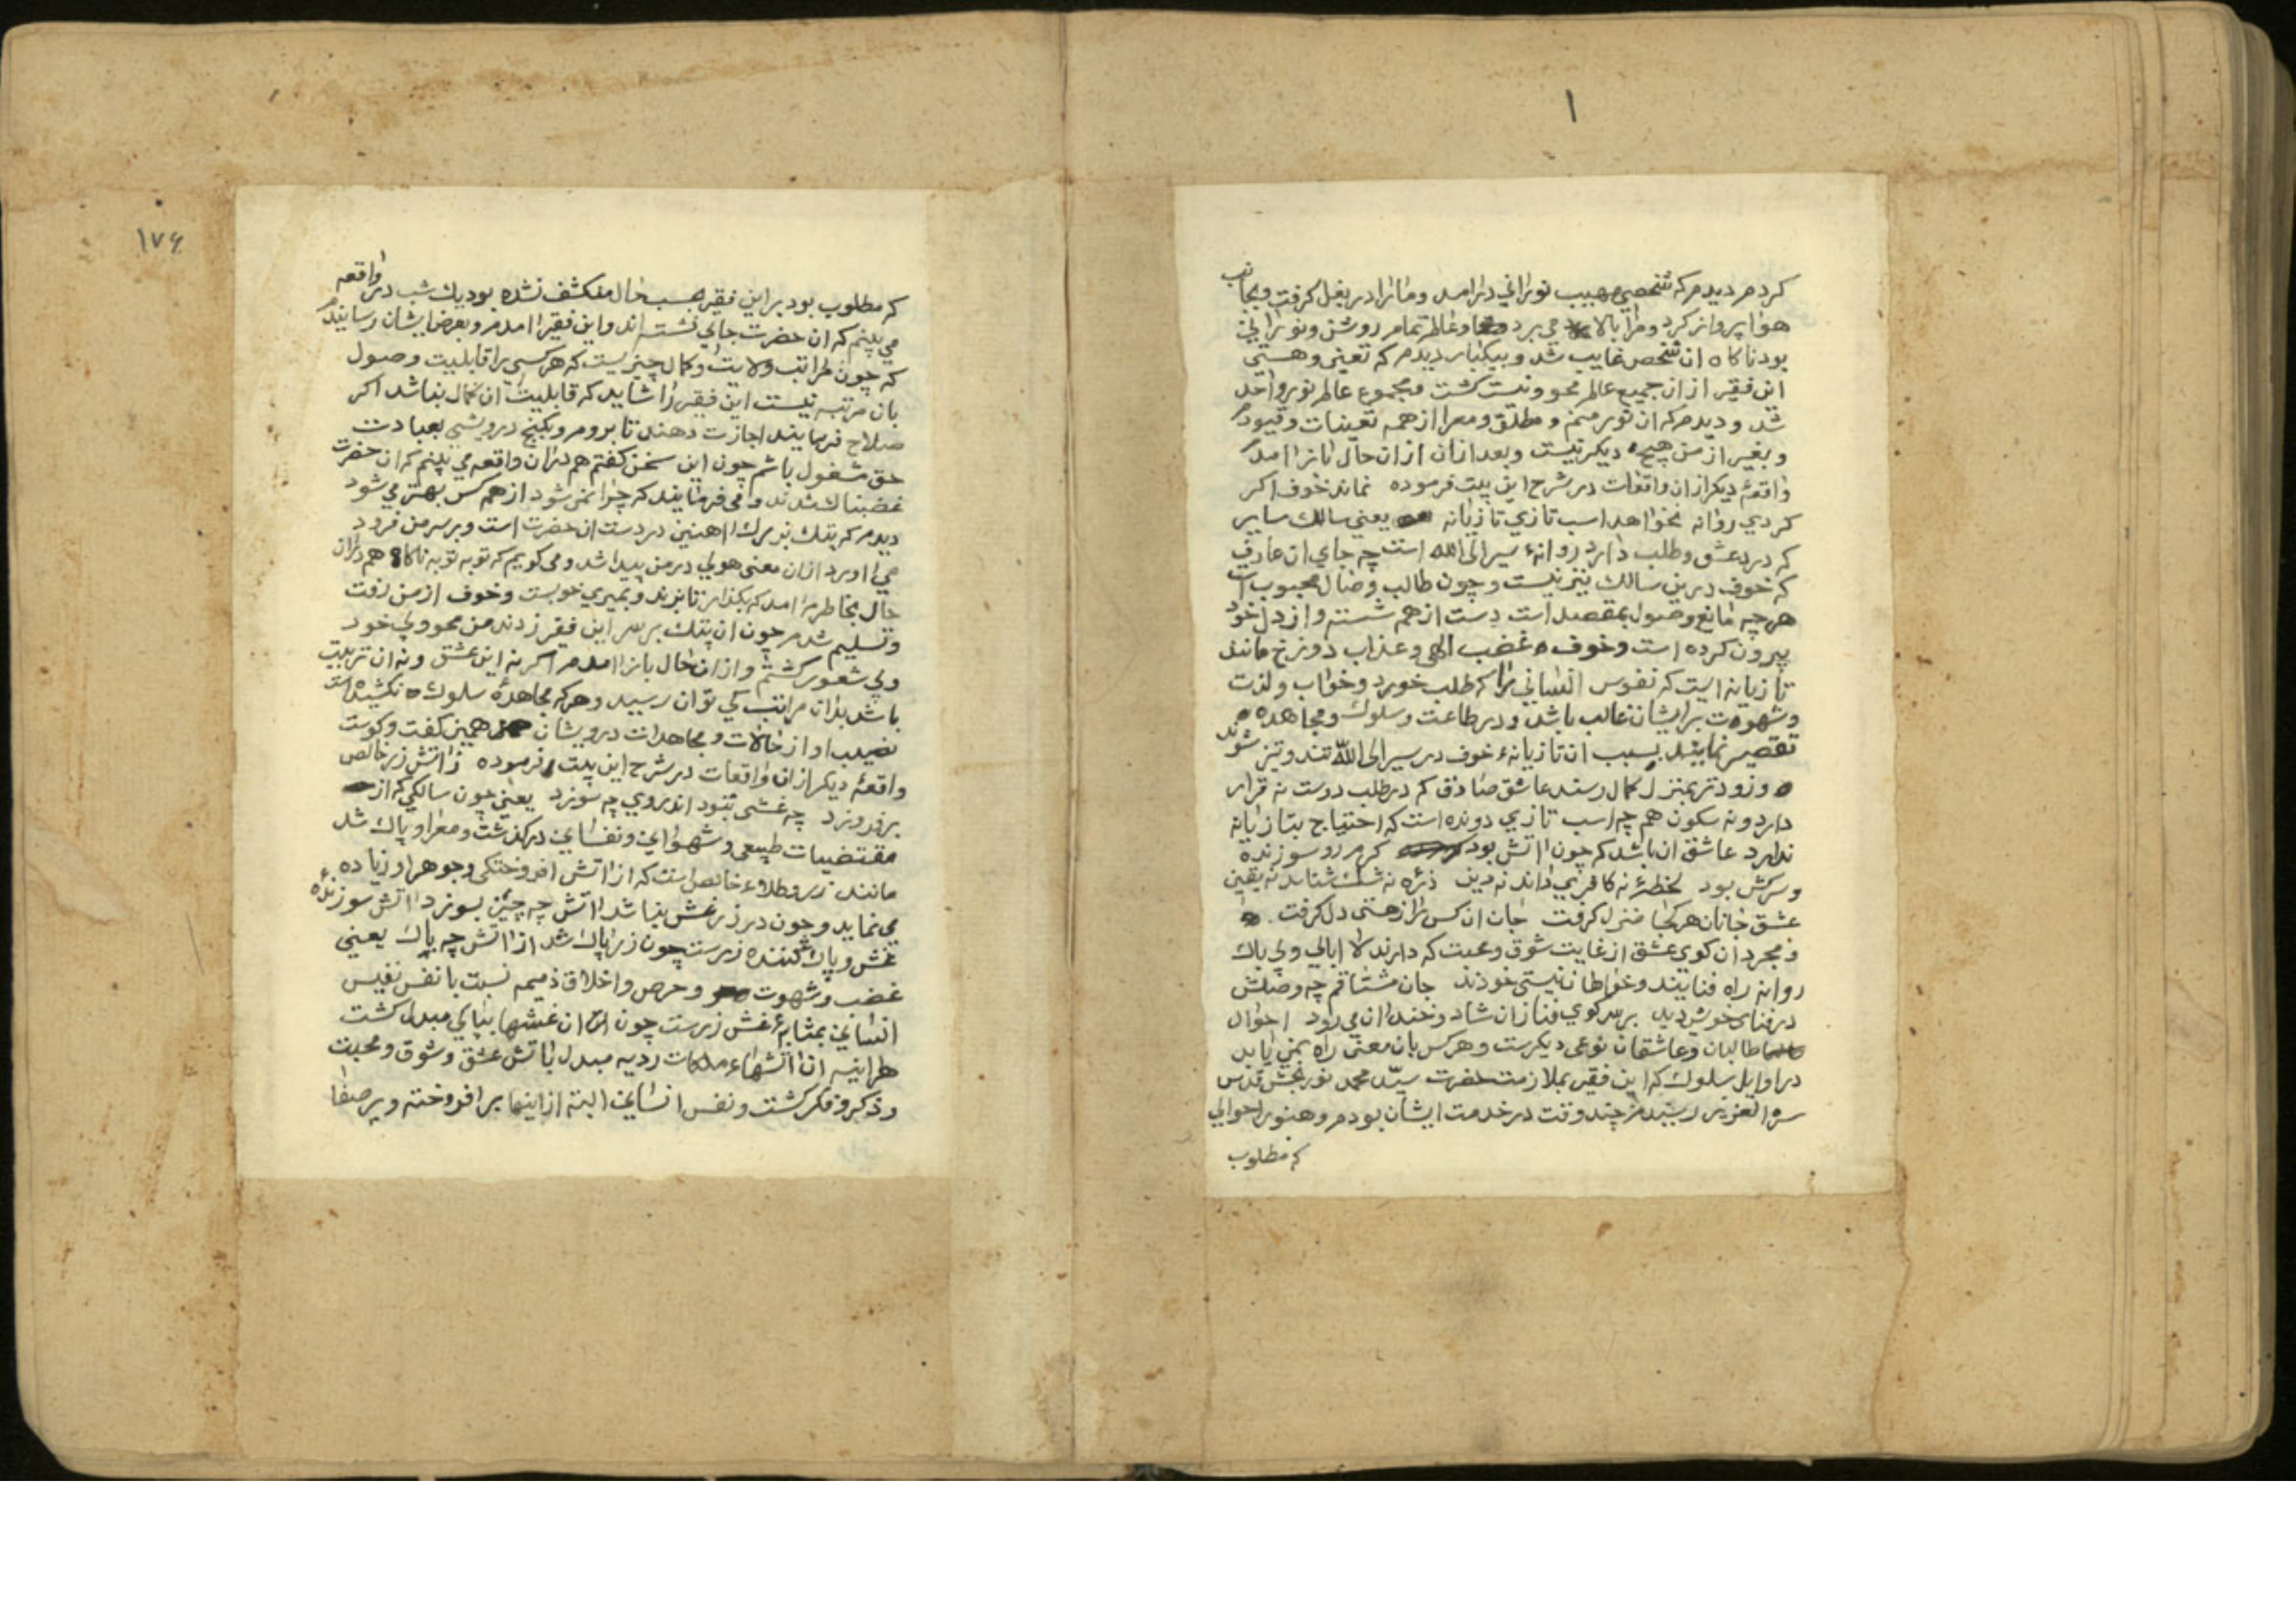 ۱
كردم ديدم كه شخصي مهيب نوراني درامد و مانرا در بغل كرفت و بجانب
هوا پرواز كرد و مرا بالا مي برد و عالم تمام روشن و نوراني
بود ناكاه ان شخص غايب شد و بيكبار ديدم كه تعين و هستي
اين فقير از ان جميع عالم محو و نيست كشت و مجموع عالم نور واحد
شد و ديدم كه ان نور منم و مطلق و معرا از همه تعينات و قيودم
و بغير از من هيچ ديكر نيست و بعد از ان از ان حال بانرا امدم
واقعهٔ ديكر از ان واقعات در شرح اين بيت فرموده نماند خوف اكر
كردي روانه نخواهد اسب تازي تازيانه يعني سالك ساير
كه درد عشق و طلب دارد روانهٔ سير الى الله است چه جاي ان عارف
كه خوف درين سالك نيز نيست و چون طالب وصال محبوب است
هر چه مانع وصول بمقصد است دست از همه شسته و از دل خود
بيرون كرده است و خوف غضب الهي و عذاب دوزخ مانند
تازيانه ايست كه نفوس انساني را كه طلب خورد و خواب و لذت
و شهوت برايشان غالب باشد و در طاعت و سلوك و مجاهده
تقصير نمايند بسبب ان تازيانهٔ خوف در سير الى الله تند و تيز شوند
و زودتر بمنزل كمال رسند عاشق صادق كه در طلب دوست نه قرار
دارد و نه سكون هم چه اسب تازي دونده است كه احتياج بتازيانه
ندارد عاشق ان باشد كه چون اتش بود كرم رو سوزنده
و سركش بود لحظهٔ نه كافري داند نه دين ذره نه شك شناسد نه يقين
عشق جانان هر كجا منزل كرفت جان ان كس را ز هستي دل كرفت
و مجردان كوي عشق از غايت شوق و محبت كه دارند لا ابالي و بي باك
روانه راه فنايند و خواهان نيستي خودند جان مشتاقم چه وصلش
در فناى خويش ديد بر سر كوي فنا زان شاد و خندان مي رود احوال
طالبان و عاشقان نوعي ديكرست و هر كس بان معني راه نمي يابد
در اوايل سلوك كه اين فقير بملازمت حضرت سيد محمد نور بخش قدس
سره العزيز رسيدم چند وقت در خدمت ايشان بودم و هنوز احوالي
كه مطلوب
۱۷۶
كه مطلوب بود بر اين فقير بحسب حال منكشف نشده بود يك شب در واقعه
مي بينم كه ان حضرت جاي نشسته اند و اين فقير امدم و بعرض ايشان رسانيدم
كه چون مراتب ولايت و كمال چنريست كه هر كسي را قابليت وصول
بان مرتبه نيست اين فقير را شايد كه قابليت ان كمال نباشد اكر
صلاح فرمايند اجازت دهند تا بروم و بكنج درويشي بعبادت
حق مشغول باشم چون اين سخن كفتم هم دران واقعه مي بينم كه ان حضرت
غضبناك شدند و مي فرمايند كه چرا نمي شود از همه كس بهتر مي شود
ديدم كه پتك بزرك اهنين در دست ان حضرت است و بر سر من فرود
مي اورد از ان معني هولي در من پيدا شد و مي كويم كه توبه توبه ناكاه هم دران
حال بخاطرم امد كه بكذار تا بزند و بميري خوبست و خوف از من رفت
و تسليم شدم چون ان پتك بر سر اين فقير زدند من محو و بي خود
و بي شعور كشتم و از ان حال بانرا امدم اكر نه اين عشق و نه ان تربيت
باشد بدان مراتب كي توان رسيد و هر كه مجاهدهٔ سلوك نكشيده است
نصيب او از حالات و مجاهدات درويشان همين كفت و كوست
واقعهٔ ديكر از ان واقعات در شرح اين بيت فرموده ز اتش زر خالص
بر فروزد چه غشي نبود اندروي چه سوزد يعني چون سالكي كه از
مقتضيات طبيعي و شهواني و نفساني دركذشت و معرا و پاك شد
مانند زر و طلاء خالص است كه از اتش افروختكي و جوهر او زياده
مي نمايد و چون در زر غش نباشد اتش چه چيز بسوزد اتش سوزندهٔ
غش و پاك كننده زرست چون زر پاك شد از اتش چه باك يعني
غضب و شهوت و حرص و اخلاق ذميمه نسبت با نفس نفيس
انساني بمثابهٔ غش زرست چون ان غشها بپاكي مبدل كشت
هر اينه ان اتشهاء ملكات رديه مبدل باتش عشق و شوق و محبت
و ذكر و فكر كشت و نفس انساني البته از اينها بر افروخته و پر صفا